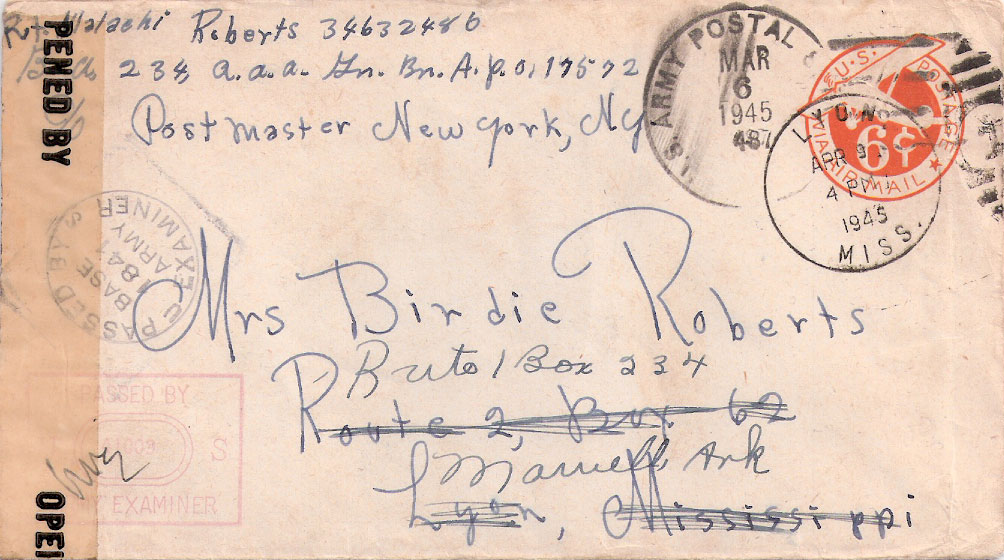 Malachi Roberts 34632486
234 a.a.a. Gn. Bn. A.p.o. 17572
Postmaster New York, NY
U.S. ARMY POSTAL
MAR
6
1945
487
U.S. POSTAGE
VIA AIR MAIL
6¢
LYON
APR 9
4 PM
1945
MISS.
Mrs Birdie Roberts
Box 234
Route 2, Box 62
Marvell Ark
Lyon, Mississippi
PENED BY
OPEN
PASSED BY
BASE
ARMY
EXAMINER
PASSED BY
S
EXAMINER